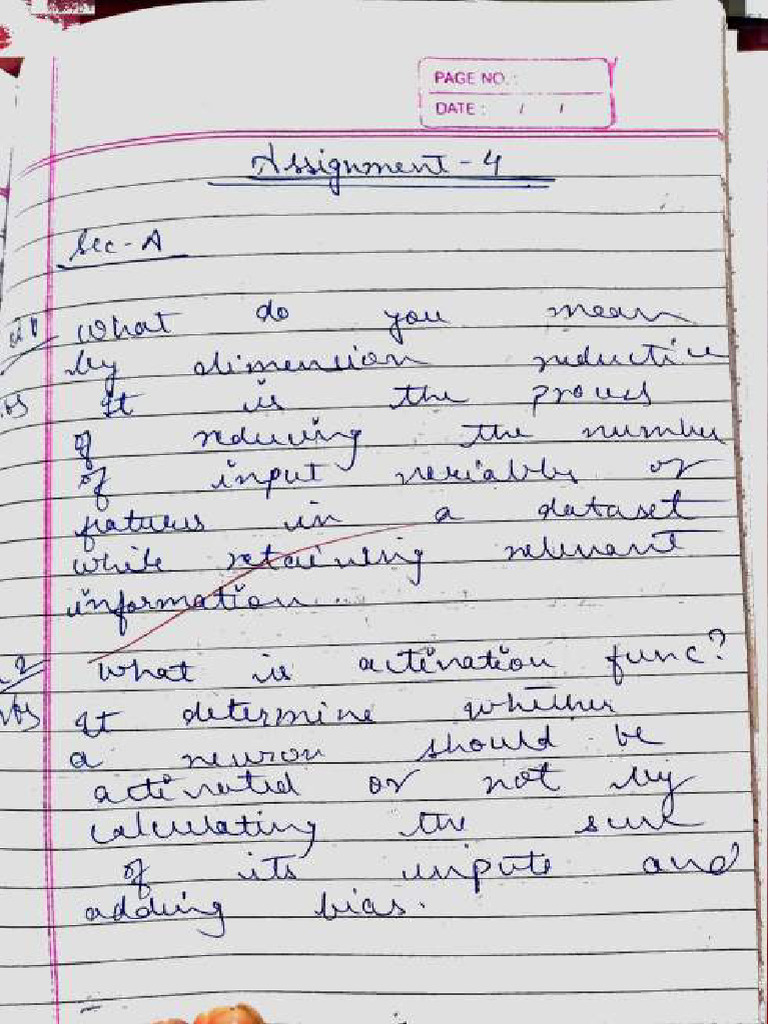 PAGE NO. :
DATE : / /
Assignment - 4
Sec - A
What do you mean
by dimension reduction
It is the process
of reducing the number
of input variables or
features in a dataset
while retaining relevant
information...
What is activation func?
It determine whether
a neuron should be
activated or not by
calculating the sum
of its inputs and
adding bias.